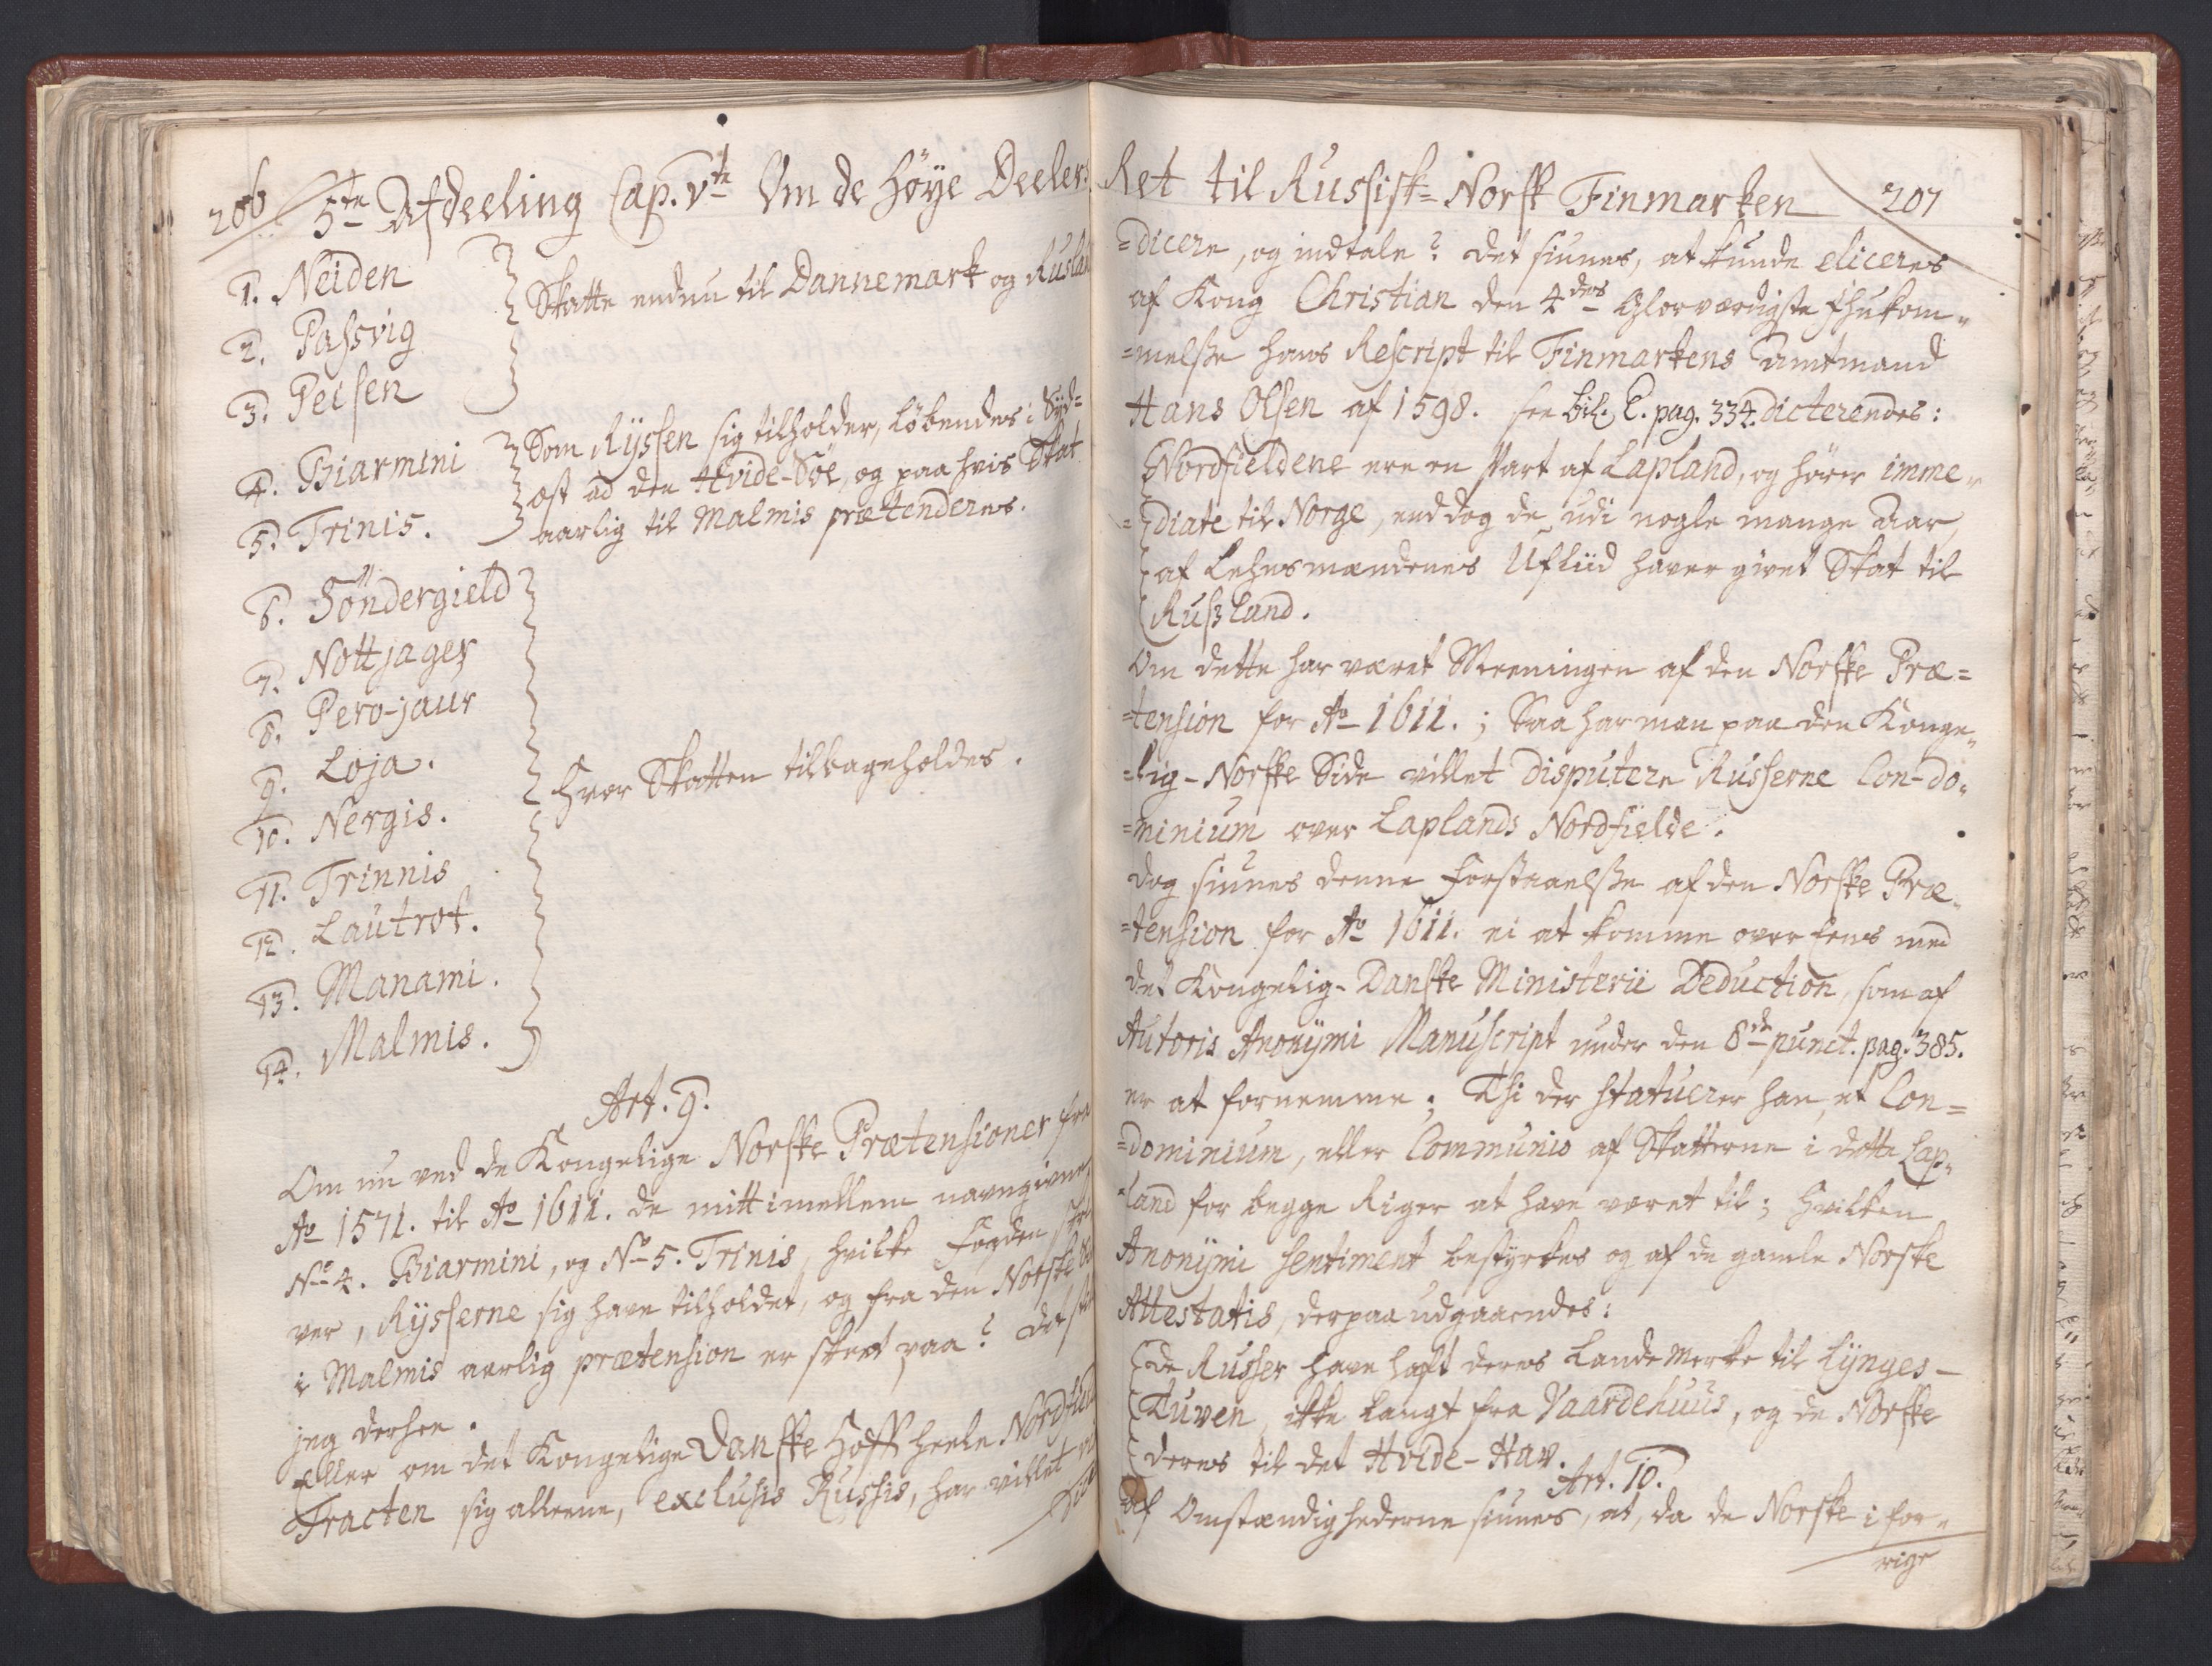 206 5te Afdeeling Cap. Vte Om de Höye Deelers
1. Neiden
2. Passvig
3. Peisen
Skatte endnu til Dannemark og Rusland
4. Biarmini
5. Trinis.
Som Ryssen sig tilholder, løbendes i Syd=
ost ad den Hvide-Söe, og paa hvis Skat
aarlig til Malmis prætenderes.
6. Söndergield
7. Nottjager
8. Pero-jaur
9. Loja.
10. Nergis.
11. Trinnis
12. Lautrot.
13. Manami.
14. Malmis.
Hvor Skatten tilbageholdes.
Art. 9.
Om nu ved de Kongelige Norske Prætensioner fra
Ao 1571. til Ao 1611. de mitt imellem navngivne
No 4. Biarmini, og No 5. Trinis, hvilke Fogden
ver, Rysserne sig have tilholdet, og fra den Norske
i Malmis aarlig prætension er skeet paa? det
jeg derhen.
Eller om det Kongelige Danske Hoff heele Nordfield
Tracten sig alleene, exclusis Russis, har villet
Ret til Russisk=Norsk Finmarken 207
=dicere, og indtale? det siunes, at kunde eliceres
af Kong Christian den 4des Glorværdigste Ihukom=
=melse hans Rescript til Finmarkens Amtmand
Hans Olsen af 1598. see bil. C. pag. 334. dicterendes:
Nordfieldene ere en Part af Lapland, og hører imme=
=diate til Norge, end dog de udi nogle mange Aar,
af Lehnsmændenes Ufliid haver givet Skat til
Rußland.
Om dette har været Meeningen af den Norske Præ=
=tension for Ao 1611.; Saa har man paa den Konge=
=lig-Norske Side villet disputere Russerne Con-do=
=minium over Laplands Nordfielde.
dog siunes denne Forstaaelse af den Norske Præ=
=tension for Ao 1611. ei at komme over Eens med
det Kongelig-Danske Ministerii Deduction, som af
Autoris Anonymi Manuscript under den 8de punct. pag. 385.
er at fornemme; Thi der statuerer han, et Con=
=dominium, eller Communio af Skatterne i dette Lap=
=land for begge Riger at have været til; hvilken
Anonymi sentiment bestyrkes og af de gamle Norske
Attestatis, derpaa udgaaendes:
de Russer have haft deres Lande Merke til Lynges-
Tuven, ikke langt fra Vaardehuus, og de Norske
deres til det Hvide-Hav.
Art. 10.
Af Omstændighederne siunes, at, da de Norske i for=
rige